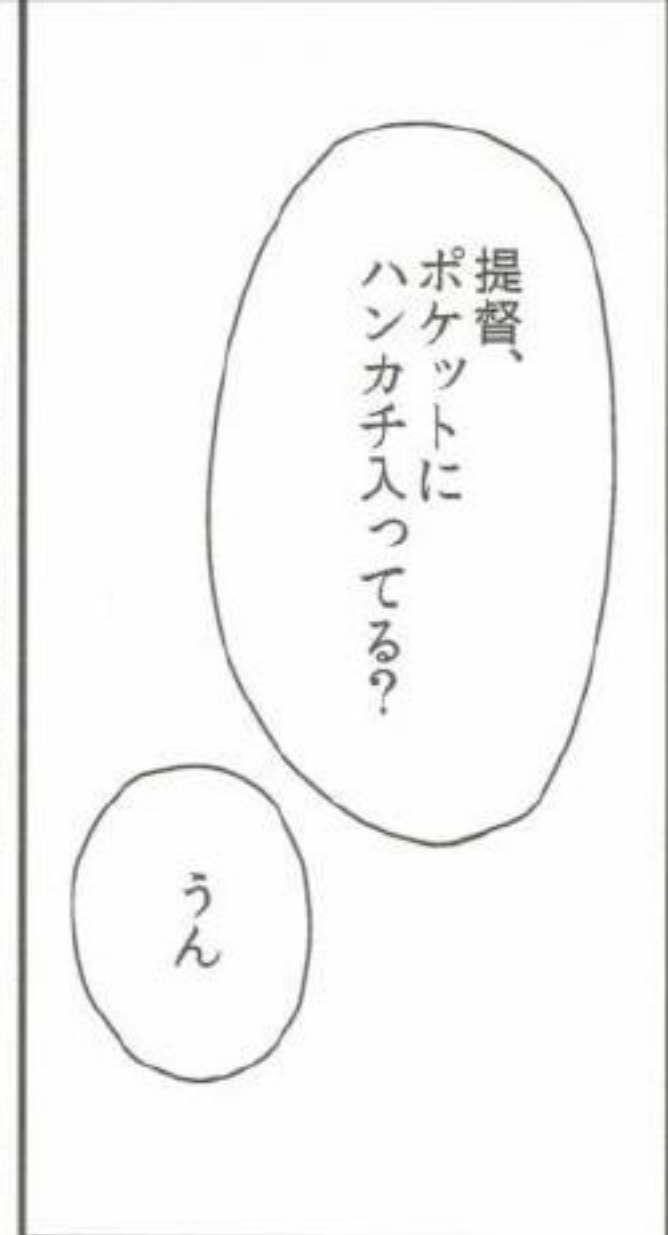 提督、
ポケットに
ハンカチ入ってる?
うん